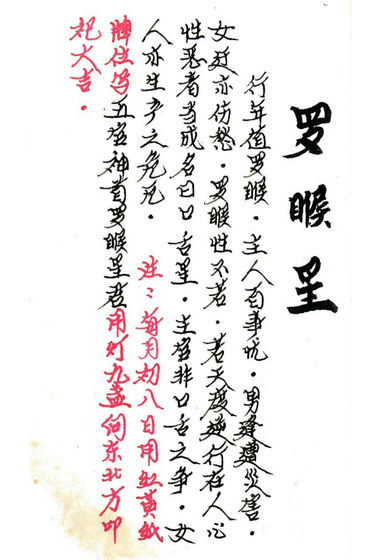 罗睺星
行年值罗睺。主人百事忧。男逢遭災害。
女廷亦伤愁。罗睺性不若。若天度逆行在人心
性恶者当成。名曰口舌星。主官非口舌之争。女
人亦生产之危厄。注：每月初八日用红黄纸
牌位写五宫神首罗睺星君用灯九盏向东北方叩
祀大吉。